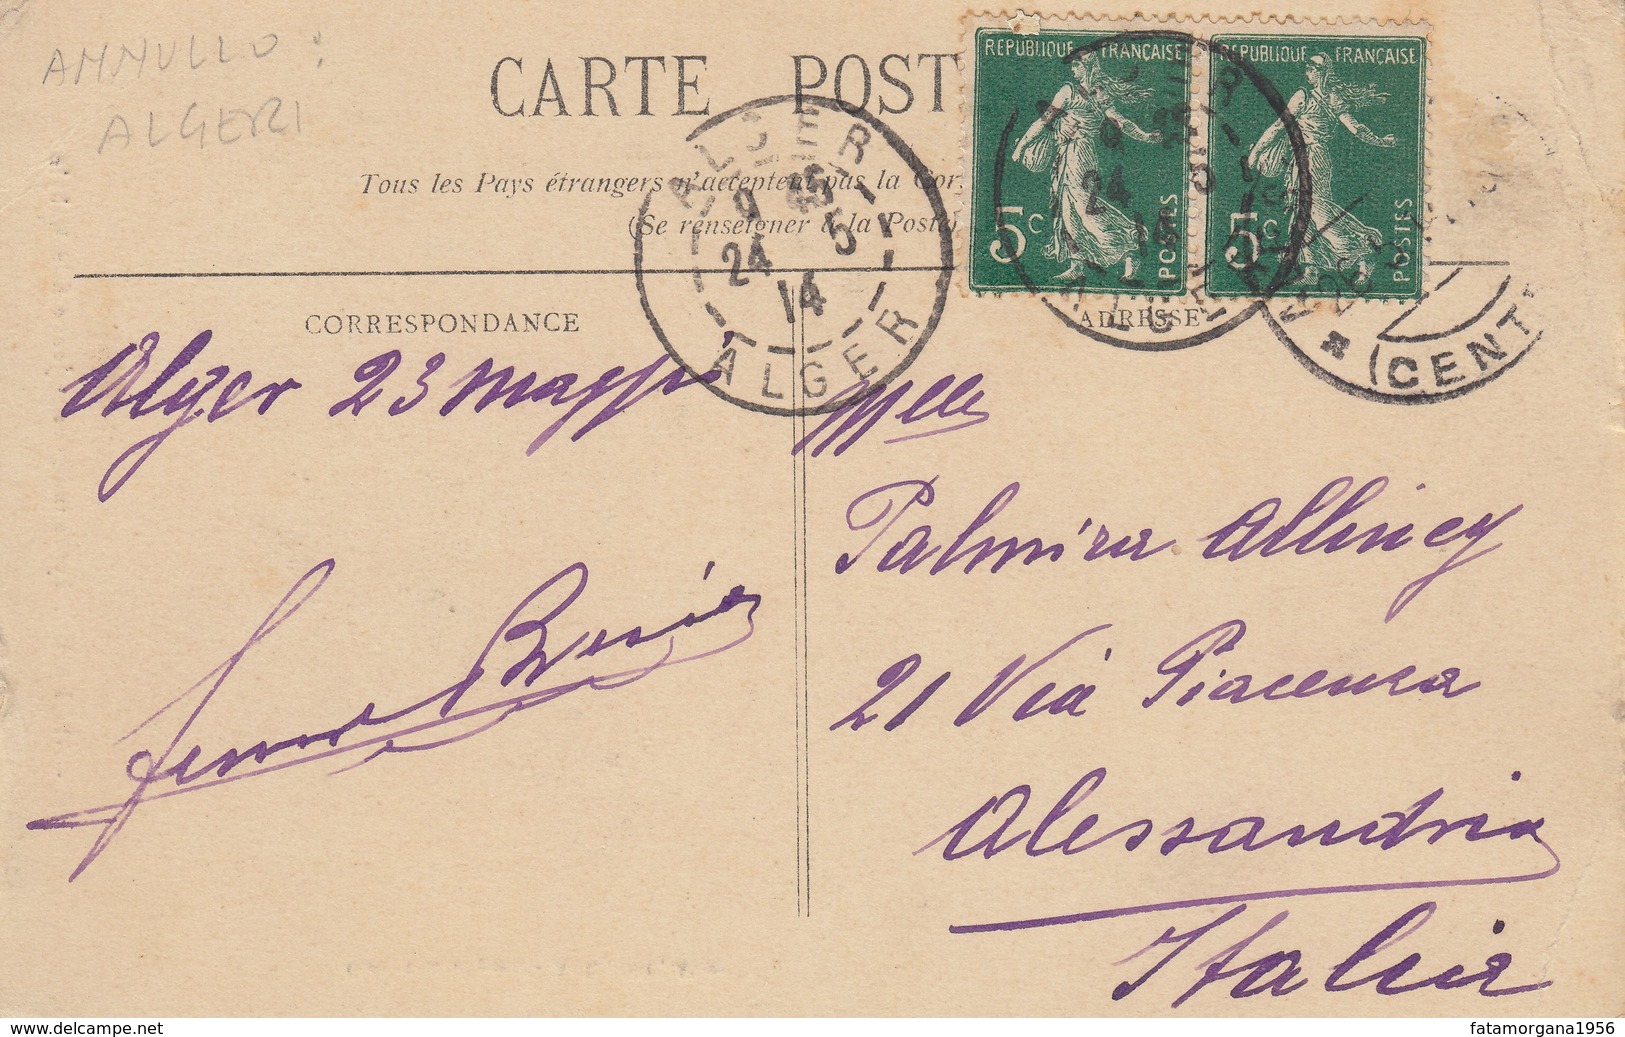 ANNULLO:
ALGERI
CARTE POST
Tous les Pays étrangers n'acceptent pas la Cor
(Se renseigner à la Poste)
REPUBLIQUE FRANÇAISE
5c
POSTES
REPUBLIQUE FRANÇAISE
5c
POSTES
ALGER
9 45
24 5
14
ALGER
ALGER
24
14
ALGER
(CENT
CORRESPONDANCE
ADRESSE
Alger 23 maggio
Mlle
Palmira
21 Via Piacenza
Alessandria
Italia
delcampe.net
fatamorgana1956